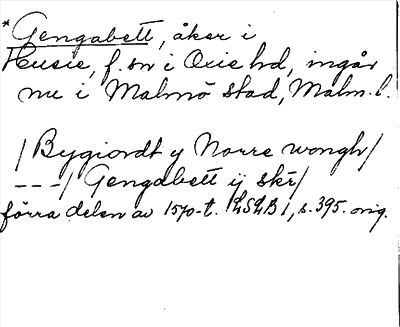 * Gengabett, åker i
Husie, f. sn i Oxie hd, ingår
nu i Malmö stad, Malm. l.
/ Bygiordt y Norre wongh /
--- / Gengabett ij skr /
förra delen av 1570-t. LSLB 1, s. 395. orig.